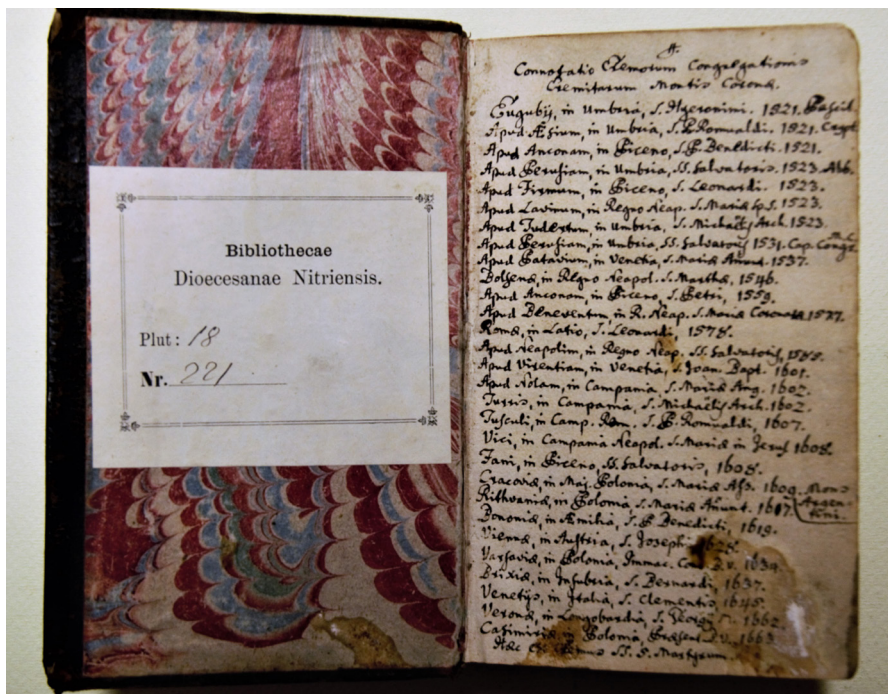 Bibliothecae
Dioecesanae Nitriensis.
Plut: 18
Nr. 221
Connotatio Eremorum Congregationis
Eremitarum Montis Coronæ.
Eugubij, in Umbria, S. Hyeronimi. 1521.
Apud Æsium, in Umbria, S. P. Romualdi. 1521.
Apud Anconam, in Piceno, S. P. Benedicti. 1521.
Apud Perusiam, in Umbria, SS. Salvatoris. 1523. Abb.
Apud Firmum, in Piceno, S. Leonardi. 1523.
Apud Lavinum, in Regno Neap. S. Mariæ 1523.
Apud Tudertum, in Umbria, S. Michaelis Arch. 1523.
Apud Perusiam, in Umbria, SS. Salvatoris 1531. Cap.
Apud Patavium, in Venetia, S. Mariæ Anunt. 1537.
in Regno Neapol. S. Marthæ, 1546.
Apud Anconam, in Piceno, S. Petri, 1559.
Apud Beneventum in R. Neap. S. Mariæ Coronata 1577.
Romæ, in Latio, S. Leonardi, 1578.
Apud Neapolim, in Regno Neap. SS. Salvatoris, 1585.
Apud in Venetia, S. Joan. Bapt. 1601.
Apud Nolam, in Campania, S. Mariæ Ang. 1602.
Turris, in Campania, S. Michaelis Arch. 1602.
Tusculi, in Camp. Rom. S. P. Romualdi, 1607.
Vici, in Campania Neapol. S. Mariæ in Jerus 1608.
Fani, in Piceno, SS. Salvatoris, 1608.
Cracoviæ, in Maj. Polonia, S. Mariæ Ass. 1609. Mons
Argen-
tini.
Rithvaniæ, in Polonia, S. Mariæ Anunt. 1617.
Bononiæ, in Æmilia, S. P. Benedicti, 1619.
Viennæ, in Austria, S. Josephi
Varsaviæ, in Polonia, Immac. Con. B.V. 1639.
Brixiæ, in Insubria, S. Bernardi, 1637.
Venetijs, in Italia, S. Clementis, 1645.
Veronæ, in Longobardia, S. Georgij 1662.
Casimiriæ in Polonia, Præsent. B.V. 1663.
SS. 5. Martyrum